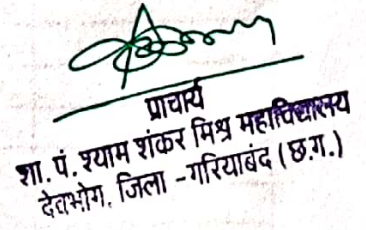 प्राचार्य
शा. पं. श्याम शंकर मिश्र महाविद्यालय
देवभोग, जिला -गरियाबंद (छ.ग.)